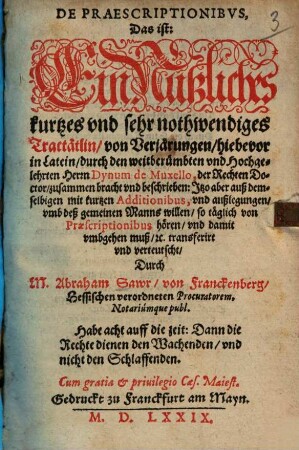 3
DE PRAESCRIPTIONIBVS,
Das ist:
Ein Nützlichs
kurtzes vnd sehr nothwendiges
Tractätlin / von Verjärungen / hiebevor
in Latein / durch den weitberümbten vnd Hochge-
lehrten Herrn Dynum de Muxello, der Rechten Do-
ctor / zusammen bracht vnd beschrieben: Itzo aber auß dem-
selbigen mit kurtzen Additionibus, vnd außlegungen /
vmb deß gemeinen Manns willen / so täglich von
Præscriptionibus hören / vnd damit
vmbgehen muß / ꝛc. transferirt
vnd verteutscht /
Durch
M. Abraham Sawr / von Franckenberg /
Hessischen verordneten Procuratorem,
Notariúmque publ.
Habt acht auff die zeit: Dann die
Rechte dienen den Wachenden / vnd
nicht den Schlaffenden.
Cum gratia & priuilegio Cæs. Maiest.
Gedruckt zu Franckfurt am Mayn.
M. D. LXXIX.